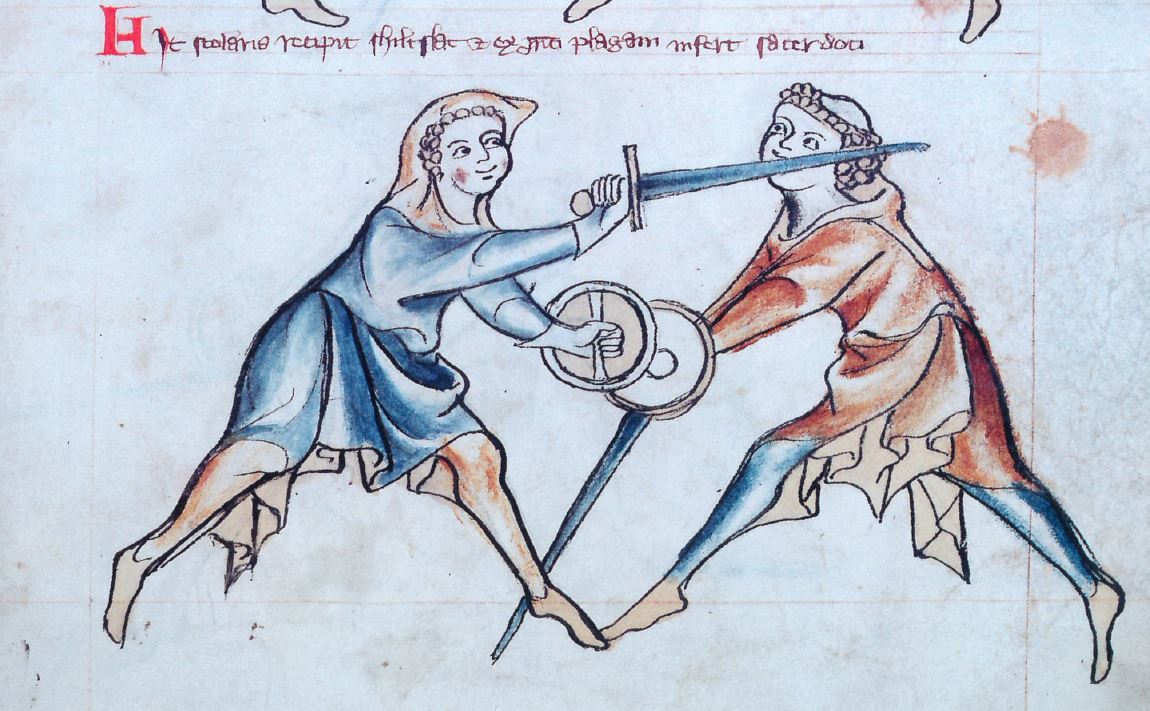 Hic scolaris recipit shiltslac & ex pͣti plagam infert sacerdoti